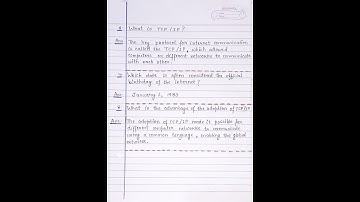 What is TCP/IP?
Ans The key protocol for internet communication
is called the TCP/IP, which allowed
computers on different networks to communicate
with each other.
Which date is often considered the official
birthday of the internet?
Ans January 1, 1983
What is the advantage of the adoption of TCP/IP
Ans The adoption of TCP/IP made it possible for
different computer networks to communicate
using a common language, enabling the global
network.